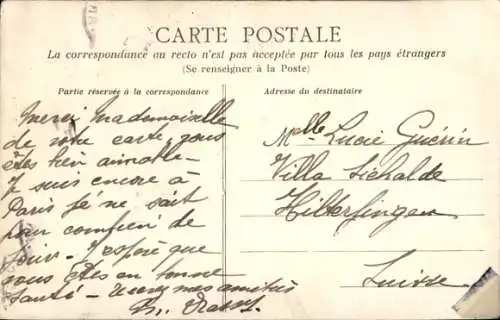 CARTE POSTALE
La correspondance au recto n'est pas acceptée par tous les pays étrangers
(Se renseigner à la Poste)
Partie réservée à la correspondance
Adresse du destinataire
Merci Mademoiselle
de votre carte, vous
êtes bien aimable -
Je suis encore à
Paris je ne sait
pour combien de
jours - J'espère que
vous êtes en bonne
santé - Recevez mes amitiés
Melle Lucie Guérin
Villa
Hilterfingen
Suisse